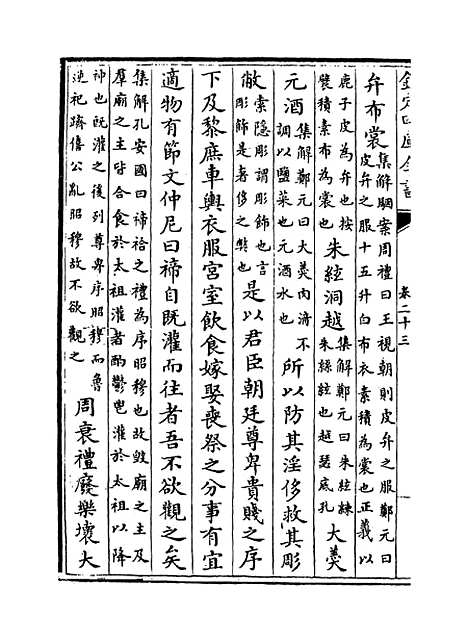 欽定四庫全書
卷二十三
弁布裳集解駰案周禮曰王視朝則皮弁之服鄭元曰皮弁之服十五升白布衣素積為裳也正義以
鹿子皮為弁也按襞積素布為裳也朱絃洞越集解鄭元曰朱絃練朱絲絃也越瑟底孔大羹
元酒集解鄭元曰大羹肉湇不調以鹽菜也元酒水也所以防其淫侈救其彫
敝索隱彫謂彫飾也言彫飾是奢侈之獘也是以君臣朝廷尊卑貴賤之序
下及黎庶車輿衣服宮室飲食嫁娶喪祭之分事有宜
適物有節文仲尼曰禘自既灌而往者吾不欲觀之矣
集解孔安國曰禘祫之禮為序昭穆也故毀廟之主及羣廟之主皆合食於太祖灌者酌鬱鬯灌於太祖以降
神也既灌之後列尊卑序昭穆而魯逆祀躋僖公亂昭穆故不欲觀之周衰禮廢樂壞大